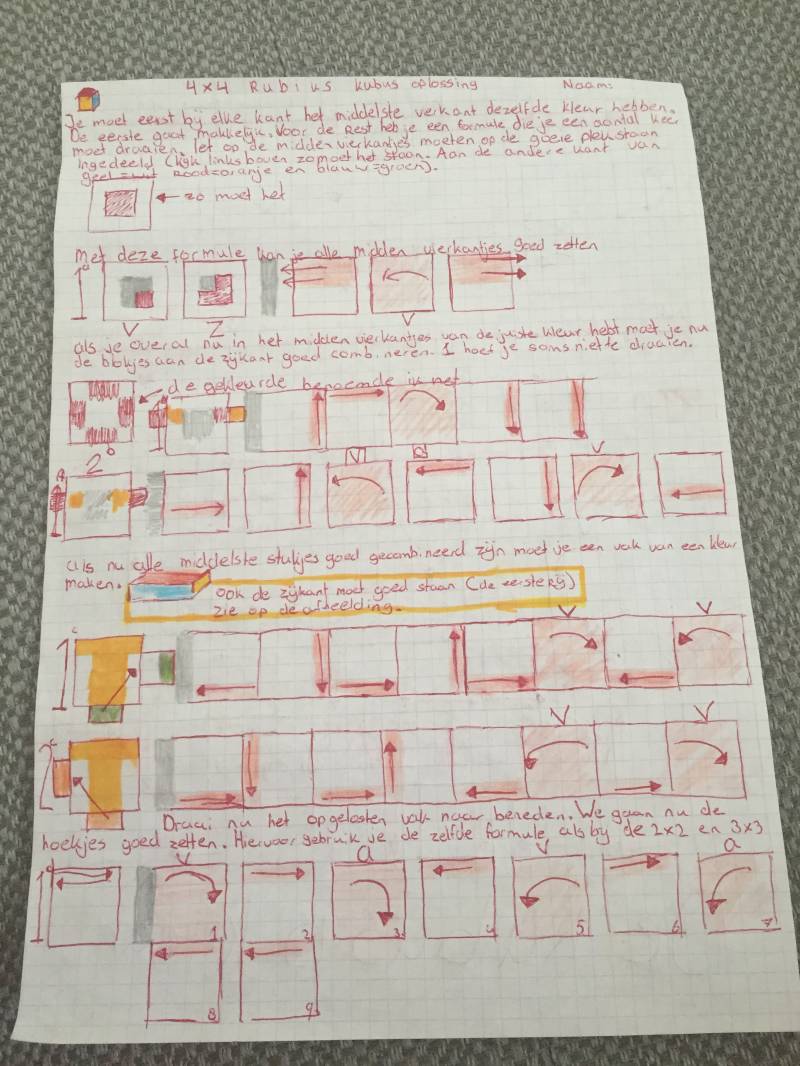 4x4 Rubius kubus oplossing Naam:
Je moet eerst bij elke kant het middelste verkant dezelfde kleur hebben.
De eerste gaat makkelijk. Voor de Rest heb je een formule die je een aantal keer
moet draaien, let op de midden vierkantjes moeten op de goeie plek staan
Ingedeeld (kijk links boven zo moet het staan. Aan de andere kant van
geel=wit Rood=oranje en blauw=groen).
zo moet het
Met deze formule kan je alle midden vierkantjes goed zetten
1a
V Z V
als je overal nu in het midden vierkantjes van de juiste kleur hebt moet je nu
de blokjes aan de zijkant goed combineren. 1 hoef je soms niet te draaien.
de gekleurde
1b
2b
V a V
als nu alle middelste stukjes goed gecombineerd zijn moet je een vak van een kleur
maken. ook de zijkant moet goed staan (de eerste Rij)
zie op de afbeelding.
V V
1c
V V
2c
Draai nu het opgelosten vak naar beneden. We gaan nu de
hoekjes goed zetten. Hiervoor gebruik je de zelfde formule als bij de 2x2 en 3x3
V a V a
1d 1 2 3 4 5 6 7
8 9